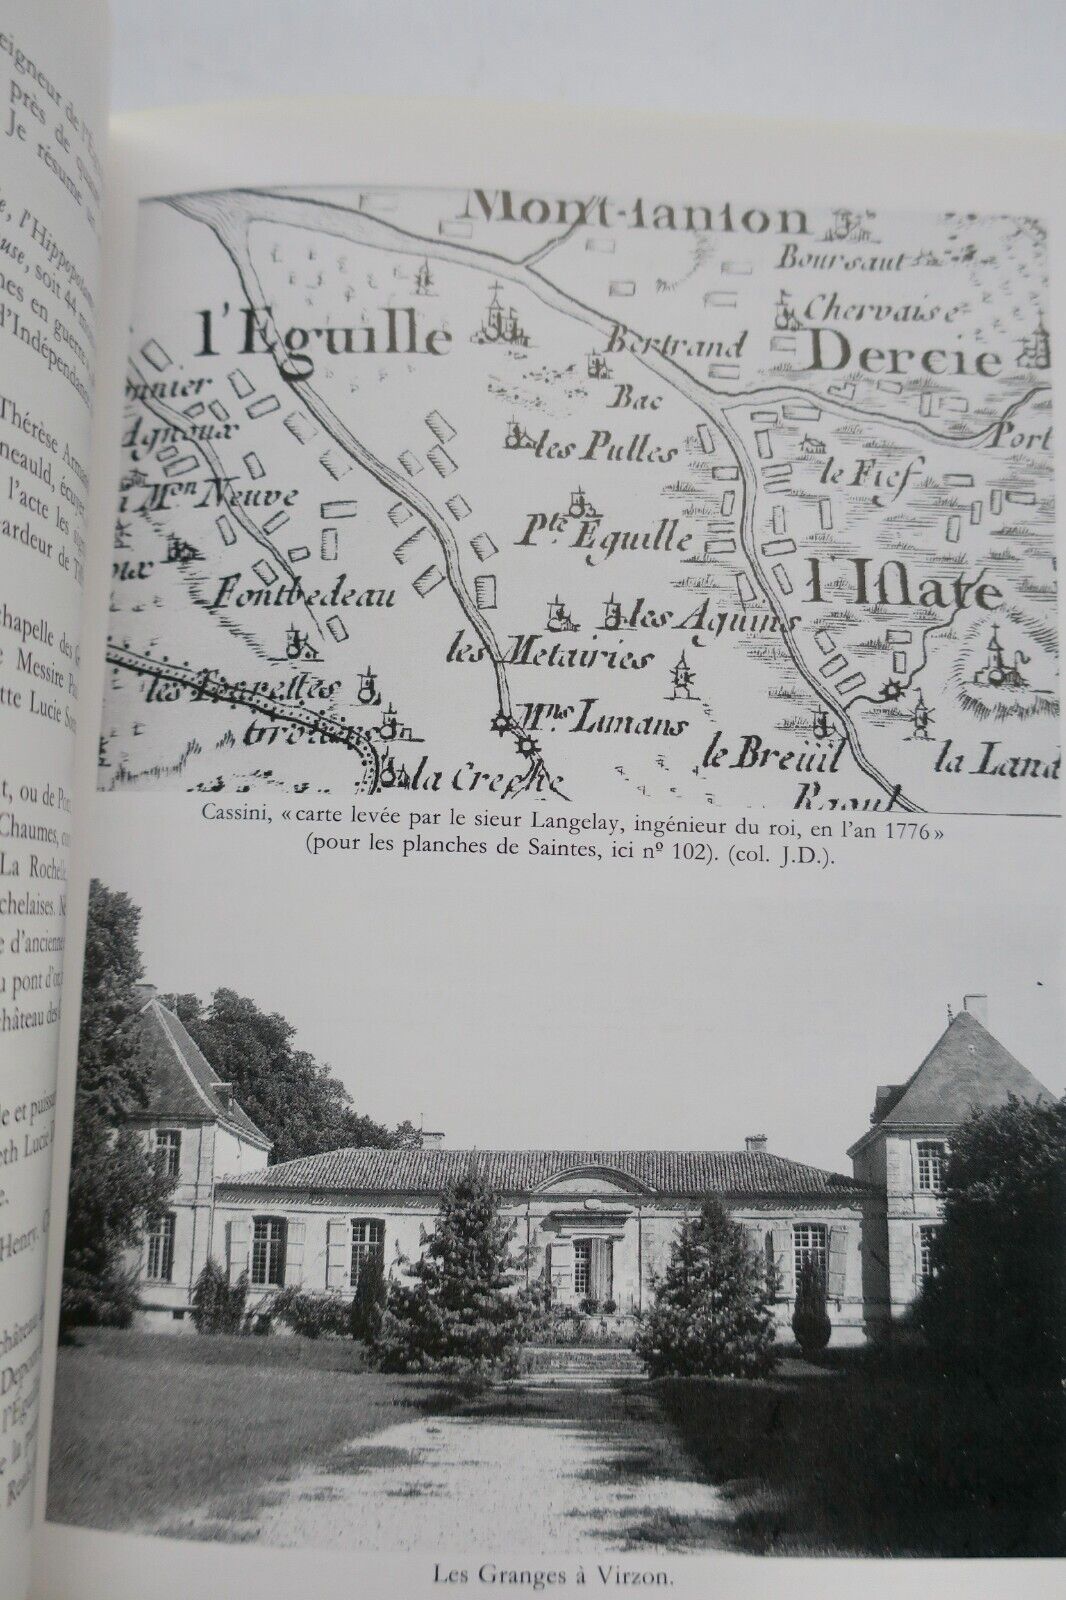 eigneur de
près de
Je résume
l'Hippopotame
use, soit 44
nes en guerre
d'Indépendan
Thérèse
neauld, écuyer
l'acte les
cardeur de
chapelle des
Messire
tte Lucie
t, ou de
Chaumes,
La Rochelle
chelaises.
e d'ancienne
u pont d'or
château des
le et puissa
eth Lucie
e.
Henry,
château
l'Éguil
Mont-ianion
Boursaut
Chervaise
l'Eguille
Bertrand
Dercie
Bac
Port
les Pulles
le Fief
Mon Neuve
Pte Eguille
Fontbedeau
l'Islate
les Aguins
les Metairies
les Tourettes
Mns Limans
le Breüil
la Land
la Creche
Raoul
Cassini, « carte levée par le sieur Langelay, ingénieur du roi, en l'an 1776 »
(pour les planches de Saintes, ici nº 102). (col. J.D.).
Les Granges à Virzon.